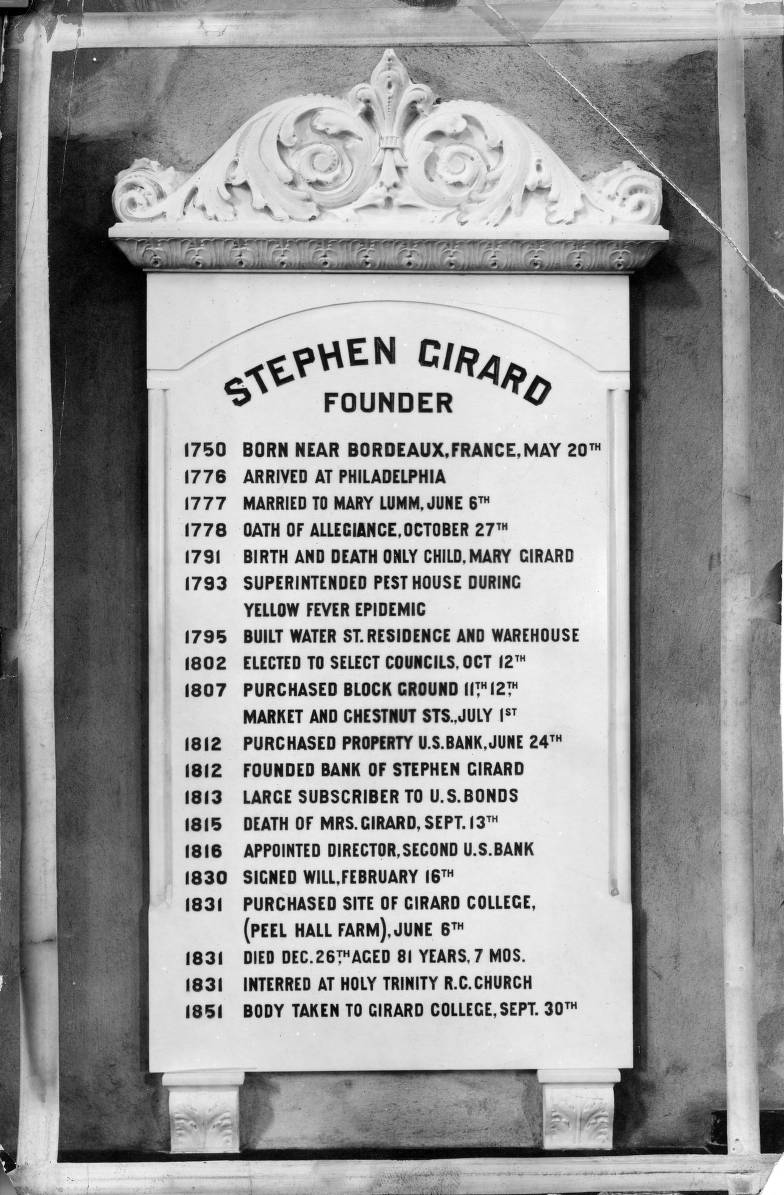 STEPHEN GIRARD
FOUNDER
1750 BORN NEAR BORDEAUX, FRANCE, MAY 20TH
1776 ARRIVED AT PHILADELPHIA
1777 MARRIED TO MARY LUMM, JUNE 6TH
1778 OATH OF ALLEGIANCE, OCTOBER 27TH
1791 BIRTH AND DEATH ONLY CHILD, MARY GIRARD
1793 SUPERINTENDED PEST HOUSE DURING
YELLOW FEVER EPIDEMIC
1795 BUILT WATER ST. RESIDENCE AND WAREHOUSE
1802 ELECTED TO SELECT COUNCILS, OCT 12TH
1807 PURCHASED BLOCK GROUND 11TH, 12TH,
MARKET AND CHESTNUT STS., JULY 1ST
1812 PURCHASED PROPERTY U.S. BANK, JUNE 24TH
1812 FOUNDED BANK OF STEPHEN GIRARD
1813 LARGE SUBSCRIBER TO U.S. BONDS
1815 DEATH OF MRS. GIRARD, SEPT. 13TH
1816 APPOINTED DIRECTOR, SECOND U.S. BANK
1830 SIGNED WILL, FEBRUARY 16TH
1831 PURCHASED SITE OF GIRARD COLLEGE,
(PEEL HALL FARM), JUNE 6TH
1831 DIED DEC. 26TH, AGED 81 YEARS, 7 MOS.
1831 INTERRED AT HOLY TRINITY R.C. CHURCH
1851 BODY TAKEN TO GIRARD COLLEGE, SEPT. 30TH